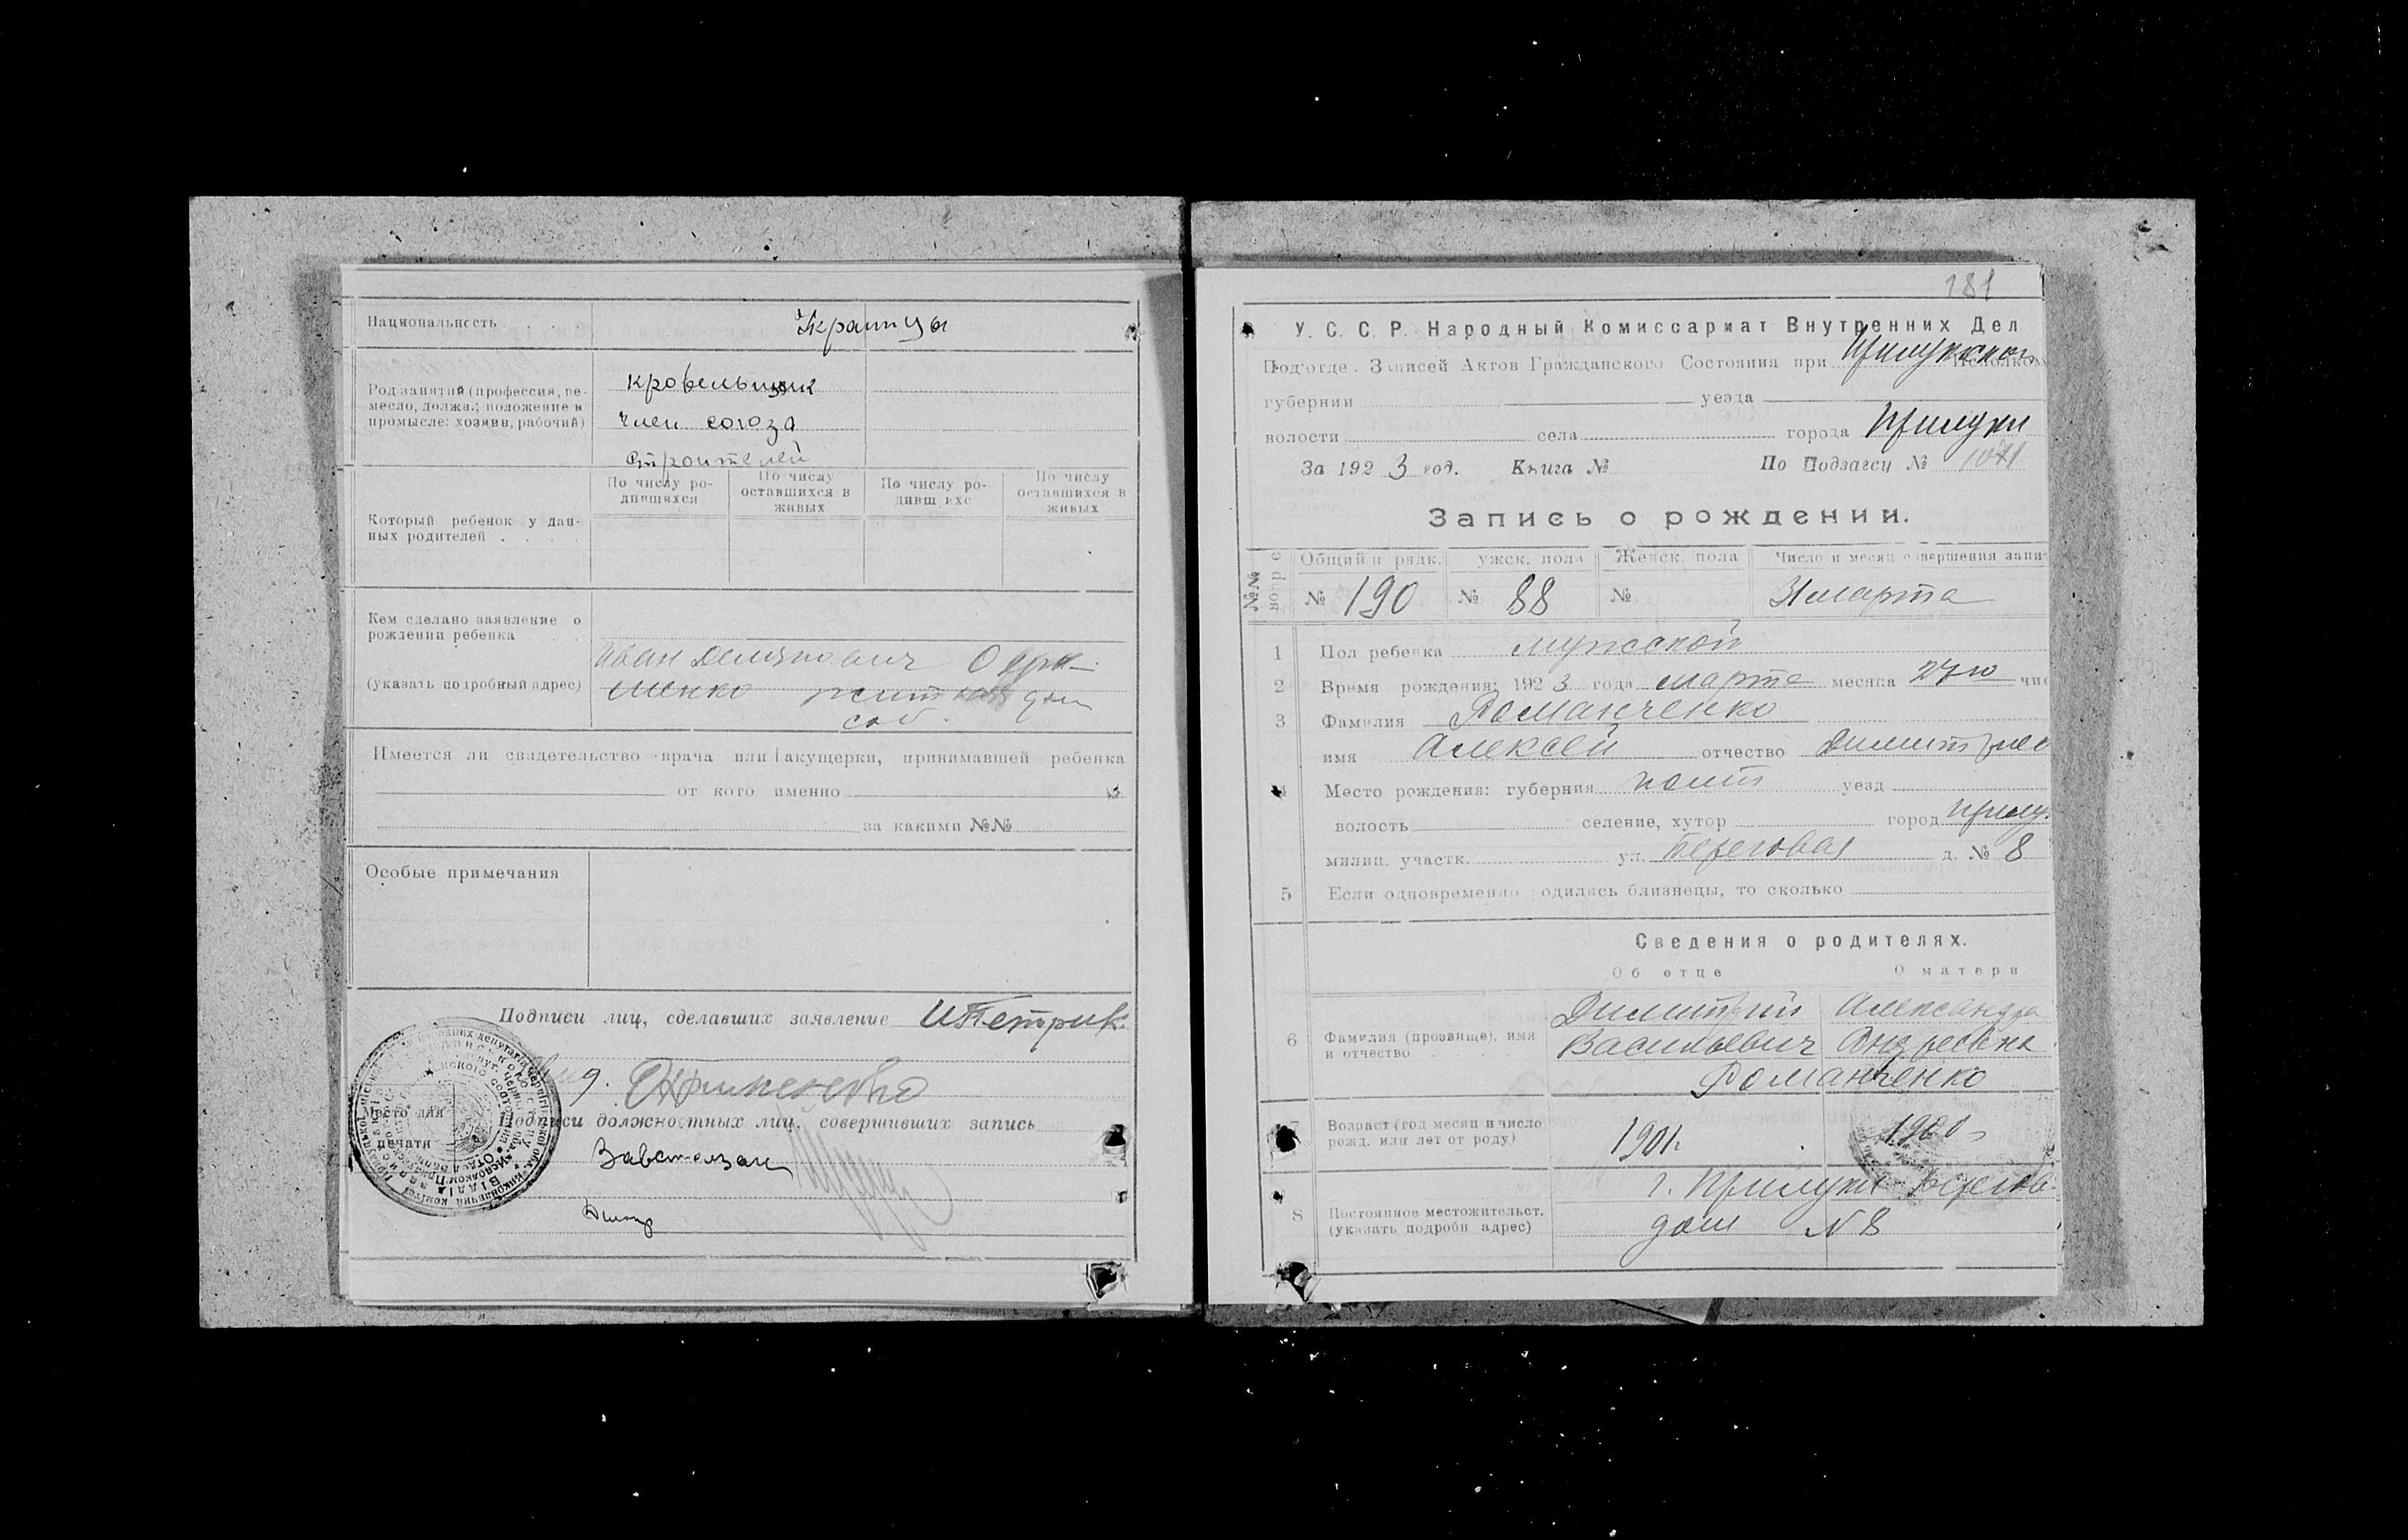 Национальность Украинцы
Род занятий (профессия, ре-
месло, должн.; положение в
промысле: хозяин, рабочий)
кровельщик
член союза
строителей
Который ребенок у дан-
ных родителей . . . .
По числу ро-
дившихся
По числу
оставшихся в
живых
По числу ро-
дивш ихс
По числу
оставшихся в
живых
Кем сделано заявление о
рождении ребенка
(указать подробный адрес)
Иван Демянович
менко жит дом
соб.
Имеется ли свидетельство врача или акушерки, принимавшей ребенка
от кого именно
за какими №№
Особые примечания
Подписи лиц, сделавших заявление И Петрик
Место для
печати
Подписи должностных лиц, совершивших запись
181
У. С. С. Р. Народный Комиссариат Внутренних Дел
Под'отде. Записей Актов Гражданского Состояния при Прилукском Исполком
губернии уезда
волости села города Прилуки
За 1923 год. Книга № По Подзагсу №
Запись о рождении.
№№ вопрос
Общий п рядк. ужск. пола Женск. пола Число и месяц совершения запи
№ 190 № 88 № 31 марта
1 Пол ребенка мужской
2 Время рождения: 1923 года марта месяца 27го чис
3 Фамилия Романченко
имя Алексей отчество Димитрие
4 Место рождения: губерния Полт уезд
волость селение, хутор город Прилу.
милиц. участк. ул. Береговая д. № 8
5 Если одновременно родились близнецы, то сколько
Сведения о родителях.
Об отце О матери
6 Фамилия (прозвище), имя
и отчество
Димитрий Александра
Васильевич Андреевна
Романченко
7 Возраст (год месяц и число
рожд. или лет от роду)
1901г. 1900
8 Постоянное местожительст.
(указать подробн адрес)
г. Прилуки Берегов
дом N 8